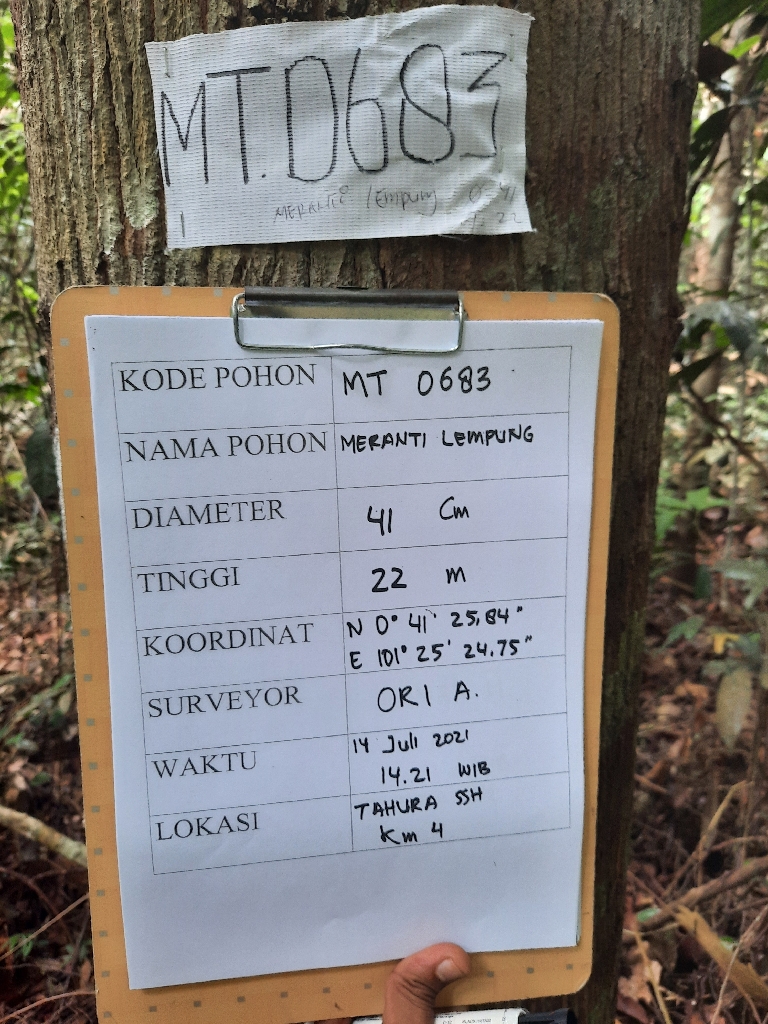 MT.0683
MERANTI lempung 0.41
22
KODE POHON MT 0683
NAMA POHON MERANTI LEMPUNG
DIAMETER 41 Cm
TINGGI 22 m
KOORDINAT N 0° 41' 25,84"
E 101° 25' 24.75"
SURVEYOR ORI A.
WAKTU 14 Juli 2021
14.21 WIB
LOKASI TAHURA SSH
Km 4